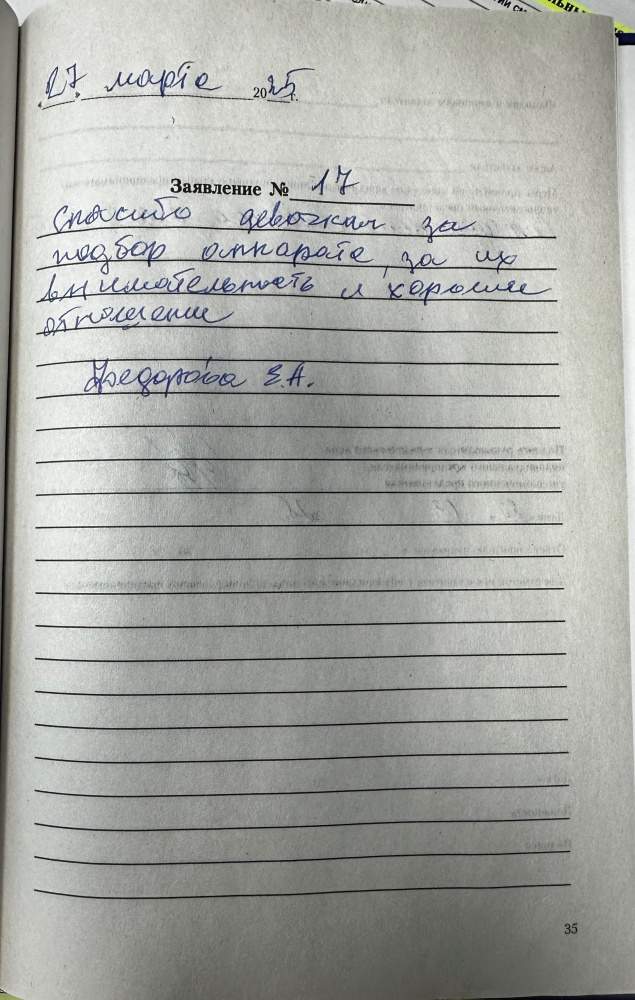 27 марта 2025 г.
Заявление № 17
Спасибо девочкам за
подбор аппарата, за их
внимательность и хорошее
отношение
Федорова Е.А.
35